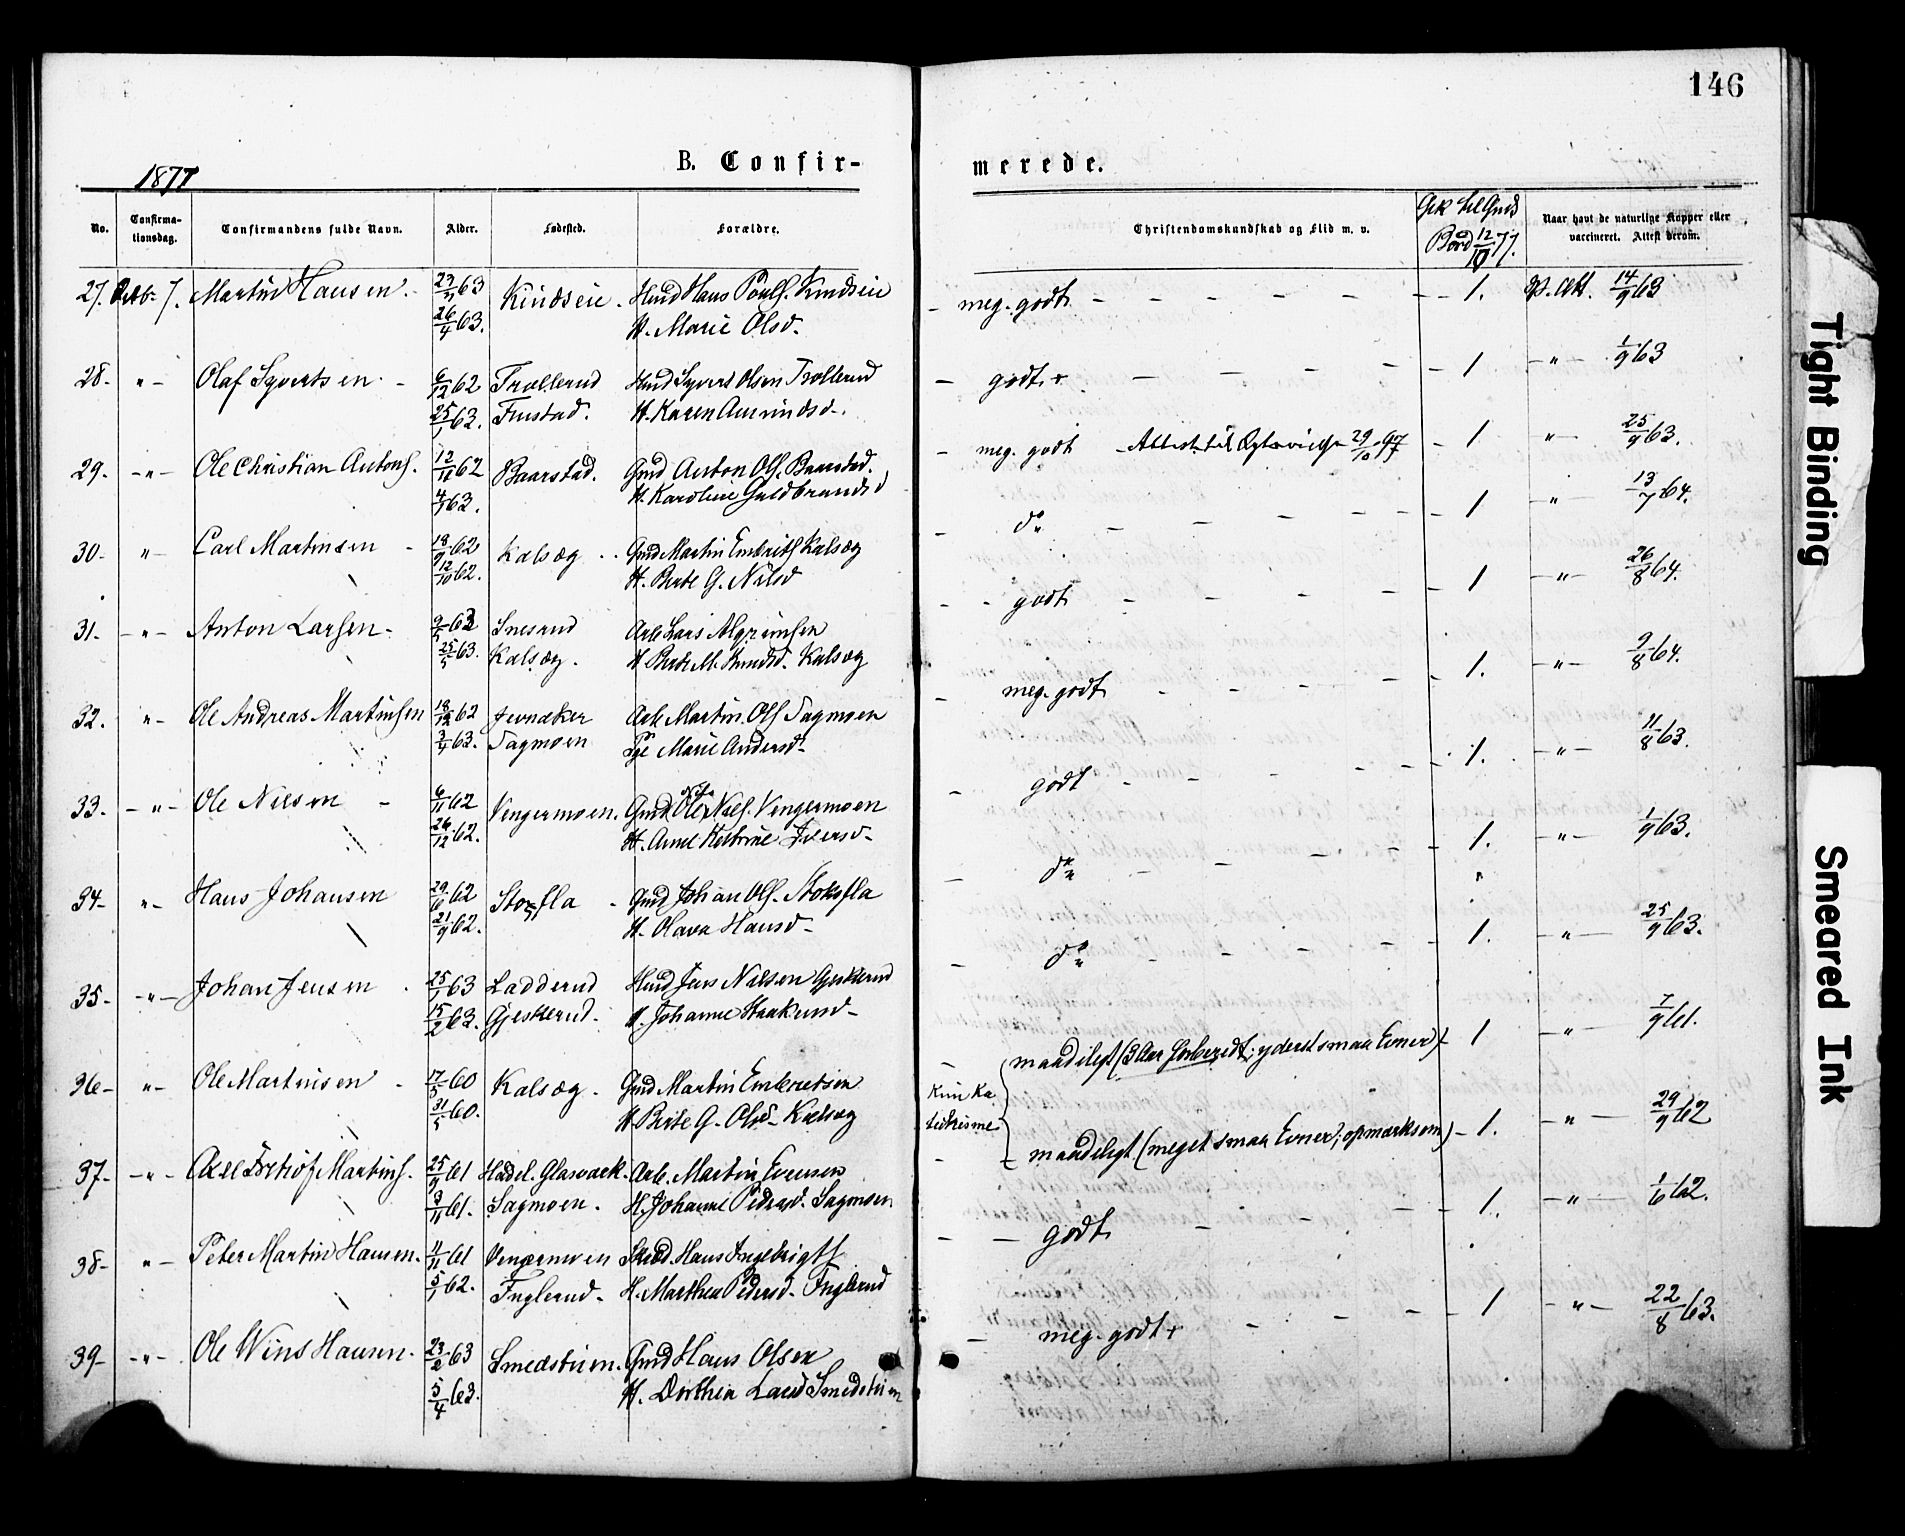 146
1877
B. Confir-
merede.
No.
Confirma-
tionsdag.
Confirmandens fulde Navn.
Alder.
Fødested.
Forældre.
Christendomskundskab og Flid m. v.
Gik til Guds
Bord 12/10 77.
Naar havt de naturlige Kopper eller
vaccineret. Attest derom.
27. Octbr 7. Martin Hansen. 63 Kindseie. Hmd Hans Pouls. Kindseie
26/4 63. H. Marie Olsd.
meg. godt - 1. P. Att. 14/9 63
28. - " - Olaf Syvertsen. 6/12 62 Trøllerud Hmd Syvert Olsen Trøllerud
25/1 63. Finstad. H. Karen Amundsd.
godt + - 1 - " - 1/9 63
29. - " - Ole Christian Antons. 12/11 62 Baarstad. Gmd Anton Ols. Baarstad.
4/1 63. H. Karoline Guldbrandsd
meg. godt - Attest til Ægtevielse 29/10 97 - 1 " - 25/9 63.
30 - " - Carl Martinsen - 18/9 62 Kalsæg Gmd Martin Embrits Kalsæg
12/10 62. H. Berte G. Nilsd
do - 1 " 13/7 64.
31. - " - Anton Larsen - 63 Snesrud Arb. Lars Algrimsen
25/5 63. Kalsæg. H. Berte M. Knudsd. Kalsæg
godt - 1 - " - 26/8 64.
32. " - Ole Andreas Martinsen 18/12 62 Jevnaker Arb. Martin Ols Sagmoen
3/4 63. Sagmoen Pge Marie Andersd.
meg. godt - 1. " - 9/8 64.
33. - " - Ole Nilsen - 6/11 62 Vengermoen. Gmd Ole Niels. Vengermoen
26/12 62. H. Anne Katrine Iversd -
godt - 1. - " - 11/8 63.
34 - " - Hans Johansen 29/6 62 Stoksfla - Gmd Johan Ols. Stoksfla
21/9 62. H. Olava Hansd -
do - 1. - " 1/9 63.
35 - - " - Johan Jensen. 25/1 63 Ladderud Hmd Jens Nilsen Gjeskerud
15/2 63. Gjeskerud. H. Johanne Haakensd -
do - 1. - " - 25/9 63.
36 - " - Ole Martinsen - 17/5 60 Kalsæg. Gmd Martin Embretsen
31/5 60. H Berte G. Olsd - Kalsæg
Kun Ka-
techisme
maadeligt (3 Aar forberedt; yderst smaa Evner) - 1 - " - 7/9 61.
37. - " - Axel Fritiof Martins. 25/9 61 Hadel. Glasværk. Arb. Martin Evensen
3/11 61. Sagmoen. H. Johanne Pedersd. Sagmoen
maadeligt (meget smaa Evner; opmærksom) - 1. - " - 29/9 62
38 - " - Peter Martin Hansen. 11/11 61 Vengermoen Hans Ingebrigts
5/1 62. Englerud - H. Marthea Pedersd. Englerud
godt - 1. - " - 1/6 62.
39 - - " - Ole Wins Hansen. 23/2 63 Smedstuen. Gmd Hans Olsen
5/4 63. H. Dorthea Larsd Smedstuen
meg. godt + - 1 - " - 22/8 63.
Tight Binding
Smeared Ink